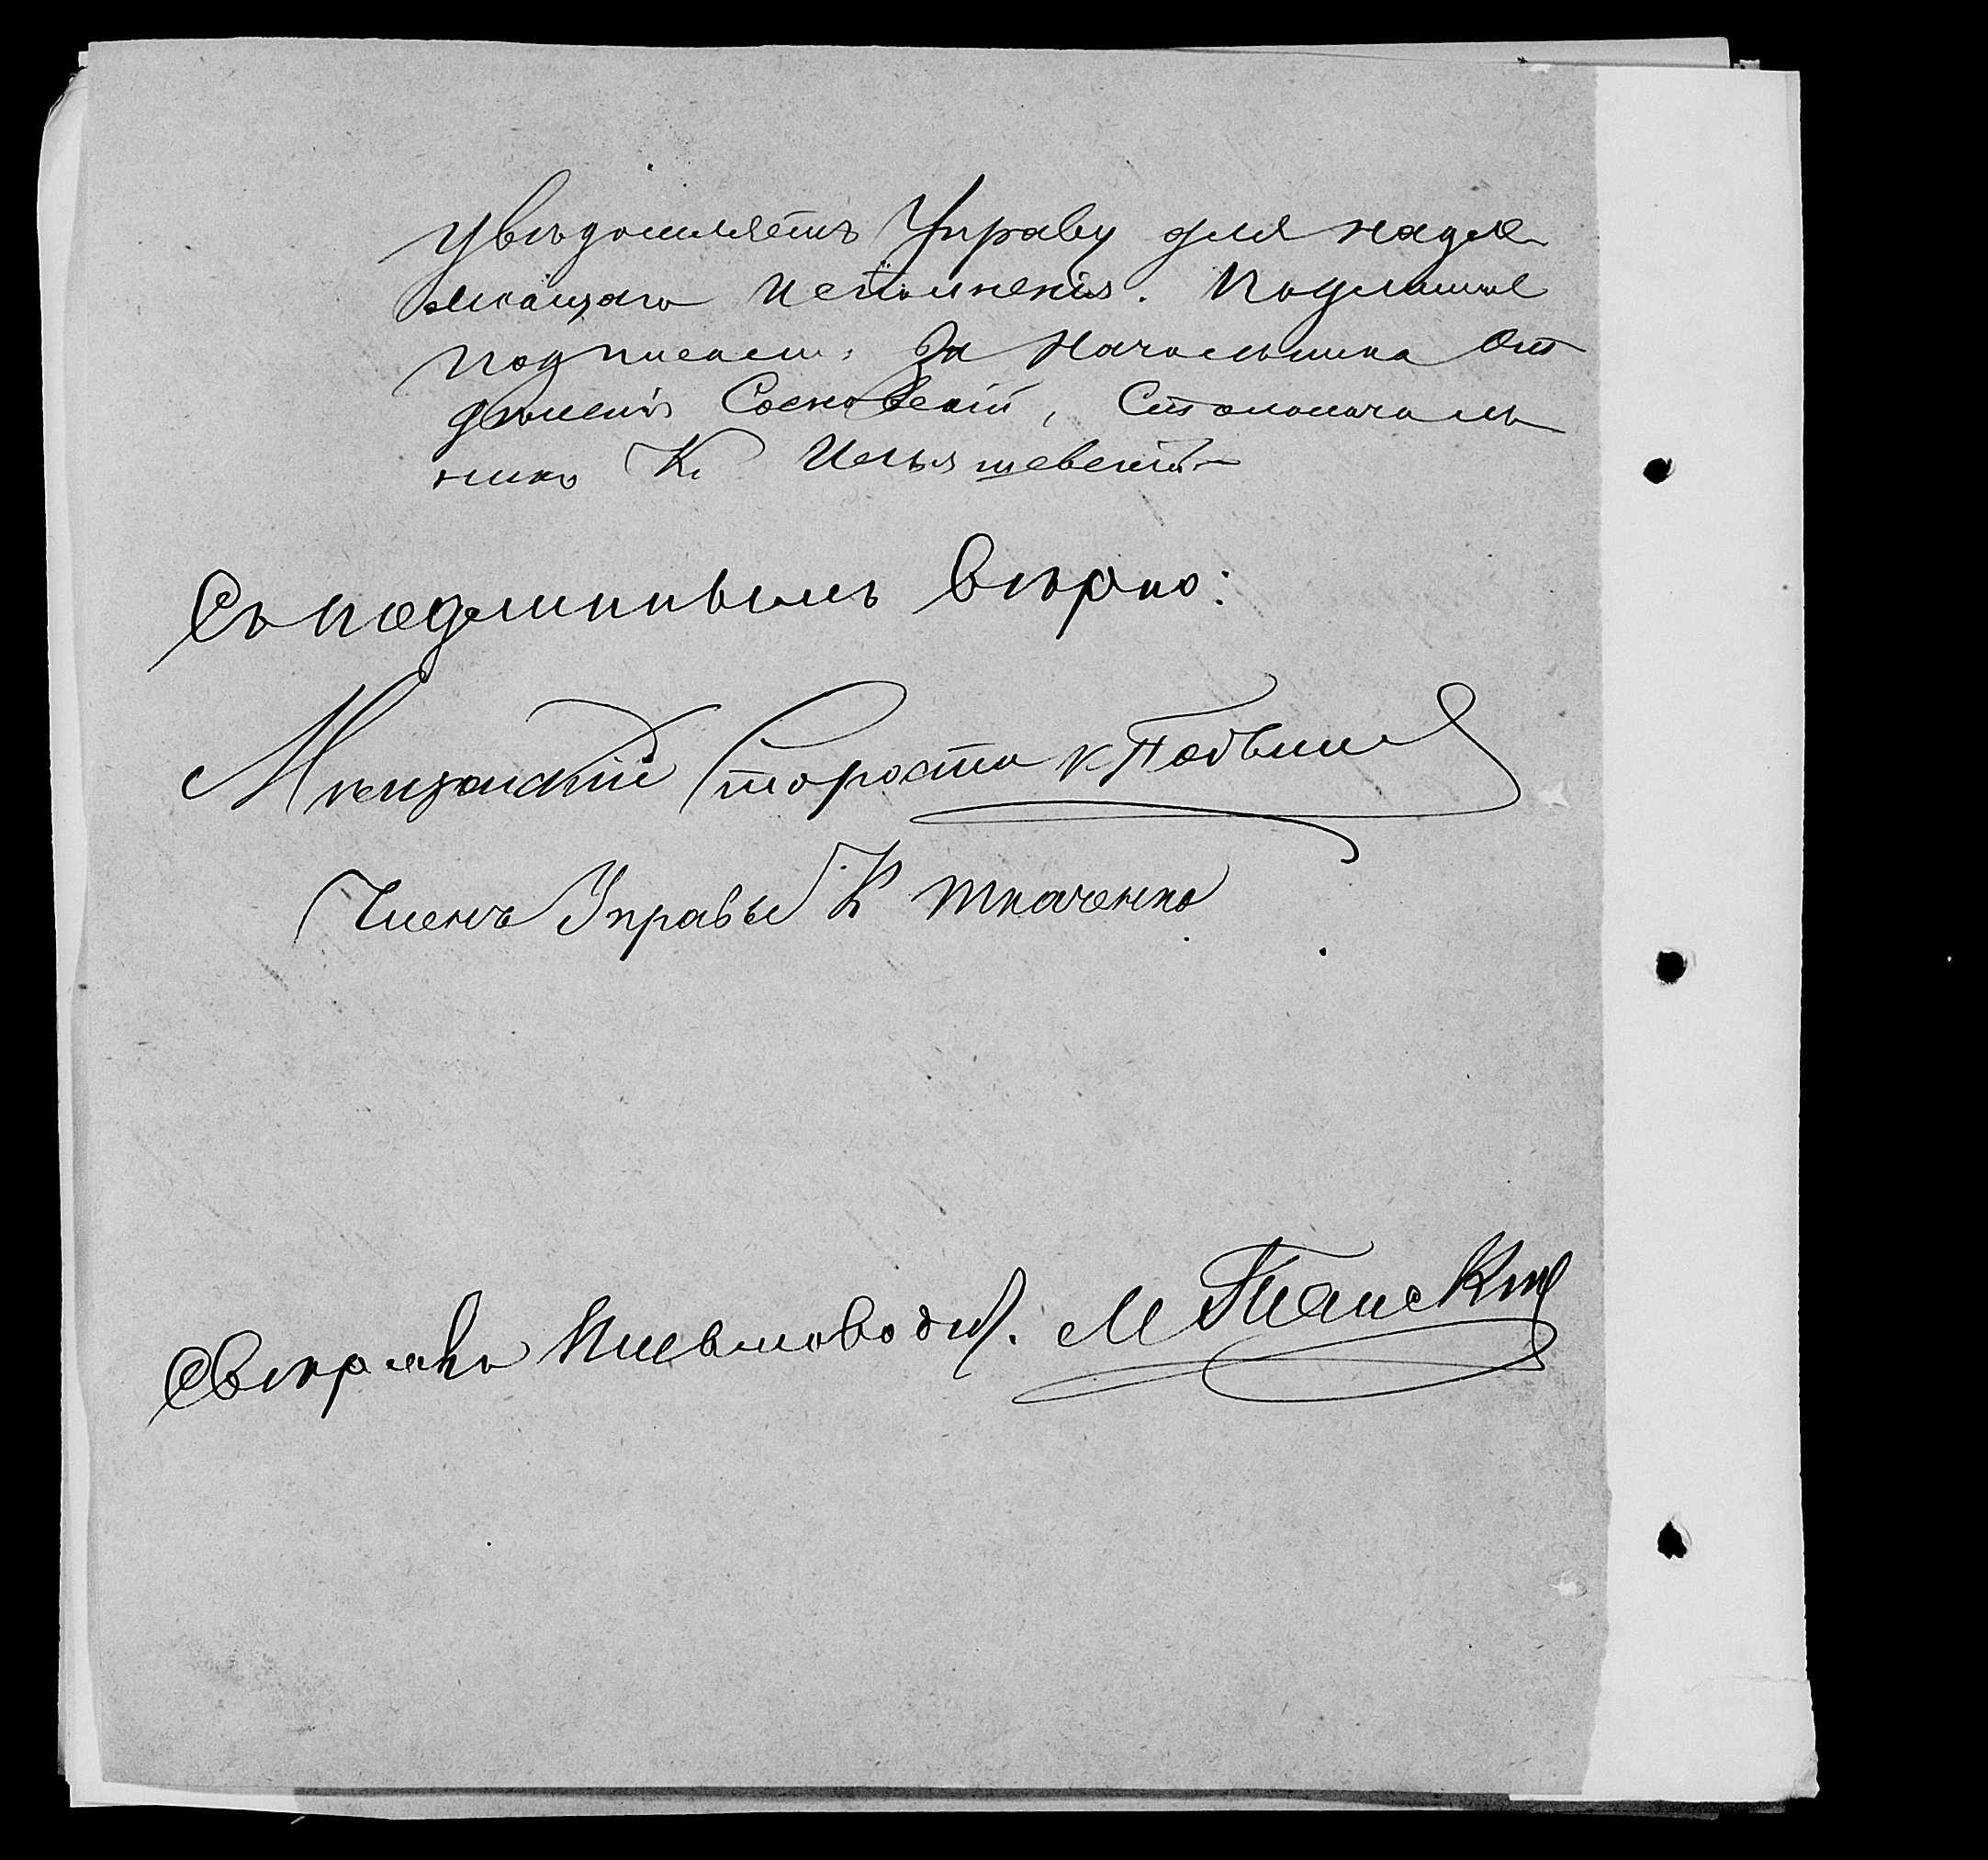 увѣдомляетъ Управу для надле
жащаго исполненія. Подлинное
подписали: За Начальника От
дѣленія Сосновскій, Столоначаль
никъ К. Ильяшевскій
Съ подлиннымъ вѣрно:
Мѣщанскій Староста К
Членъ Управы К Ткаченко
Свѣрялъ Письмоводит. М